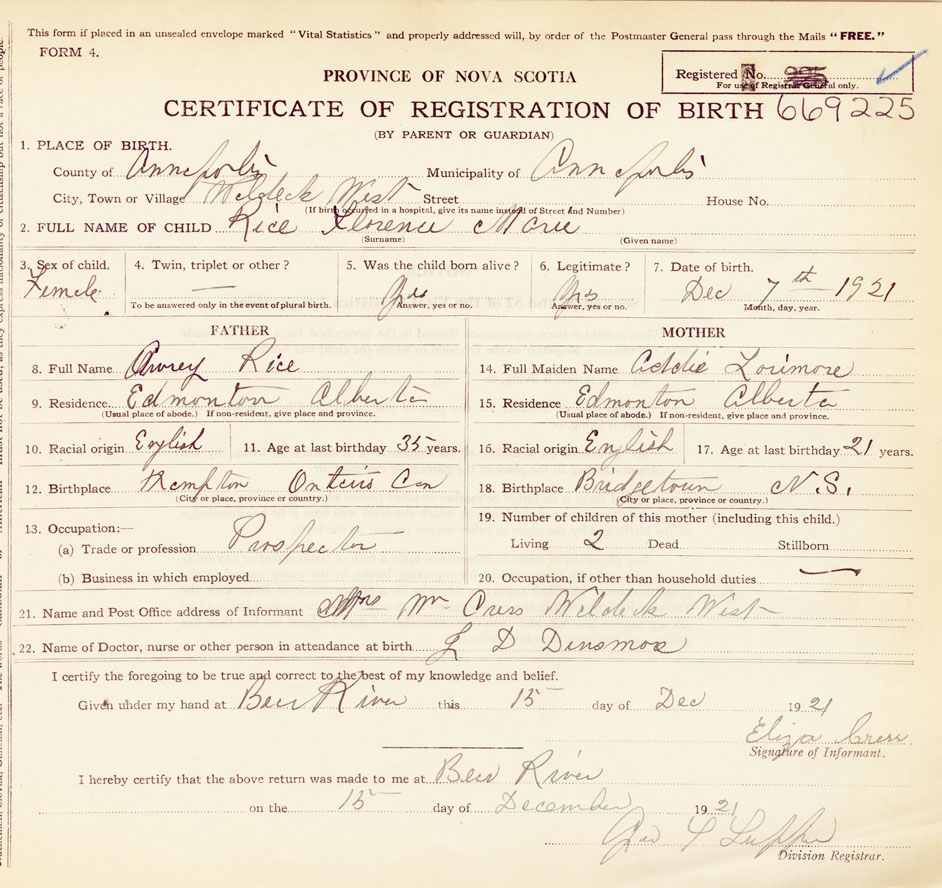 This form if placed in an unsealed envelope marked "Vital Statistics" and properly addressed will, by order of the Postmaster General pass through the Mails "FREE."
FORM 4.
Registered No. 225
For use of Registrar General only.
PROVINCE OF NOVA SCOTIA
CERTIFICATE OF REGISTRATION OF BIRTH 669225
(BY PARENT OR GUARDIAN)
1. PLACE OF BIRTH.
County of Annapolis Municipality of Annapolis
City, Town or Village Weldeck West Street House No.
(If birth occurred in a hospital, give its name instead of Street and Number)
2. FULL NAME OF CHILD Rice Florence Marie
(Surname) (Given name)
3. Sex of child. 4. Twin, triplet or other? 5. Was the child born alive? 6. Legitimate? 7. Date of birth.
Female — Yes Yes Dec 7th 1921
To be answered only in the event of plural birth. Answer, yes or no. Answer, yes or no. Month, day, year.
FATHER MOTHER
8. Full Name Rice 14. Full Maiden Name Addie Lorimore
9. Residence Edmonton Alberta 15. Residence Edmonton Alberta
(Usual place of abode.) If non-resident, give place and province. (Usual place of abode.) If non-resident, give place and province.
10. Racial origin English 11. Age at last birthday 35 years. 16. Racial origin English 17. Age at last birthday 21 years.
12. Birthplace 18. Birthplace Bridgetown N.S.
(City or place, province or country.) (City or place, province or country.)
13. Occupation:— 19. Number of children of this mother (including this child.)
(a) Trade or profession Prospector Living 2 Dead Stillborn
(b) Business in which employed 20. Occupation, if other than household duties —
21. Name and Post Office address of Informant Mrs Wm Cress Weldeck West
22. Name of Doctor, nurse or other person in attendance at birth L D Densmore
I certify the foregoing to be true and correct to the best of my knowledge and belief.
Given under my hand at Bear River this 15 day of Dec 1921
Eliza Cress
Signature of Informant.
I hereby certify that the above return was made to me at Bear River
on the 15 day of December 1921
Division Registrar.